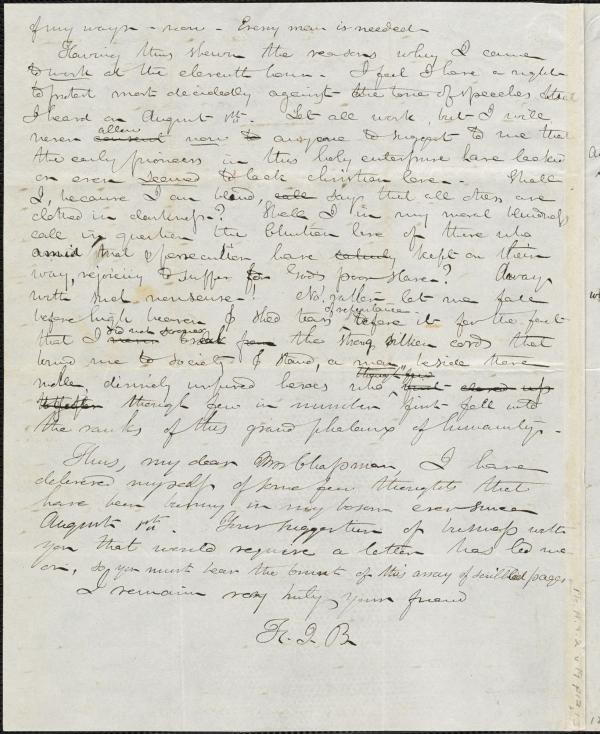 of my ways - now - Every man is needed -
Having thus shewn the reasons why I came
to work at the eleventh hour - I feel I have a right
to protest most decidedly against the tone of speeches that
I heard on August 1st. Let all work, but I will
never allow now to anyone to suggest to me that
the early pioneers in this holy enterprise have lacked
or even seemed to lack christian love. Shall
I, because I am blind, say that all others are
clothed in darkness? Shall I in my moral blindness
call in question the christian love of those who
amid trial & persecution have kept on their
way, rejoicing to suffer for God's poor slave? Away
with such nonsense! No! rather let me fall
before high heaven & shed tears of repentance before it for the fact
that I did not sooner break the strong silken cords that
bound me to society & stand, a man beside those
noble, divinely inspired heroes who
though few in number first fell into
the ranks of this grand phalanx of humanity.
Thus, my dear Mrs Chapman, I have
delivered myself of some few thoughts that
have been burning in my bosom ever since
August 1st. Your suggestion of business with
you that would require a letter has led me
on, so you must bear the brunt of this array of scribbled pages
I remain very truly your friend
H. I. B.